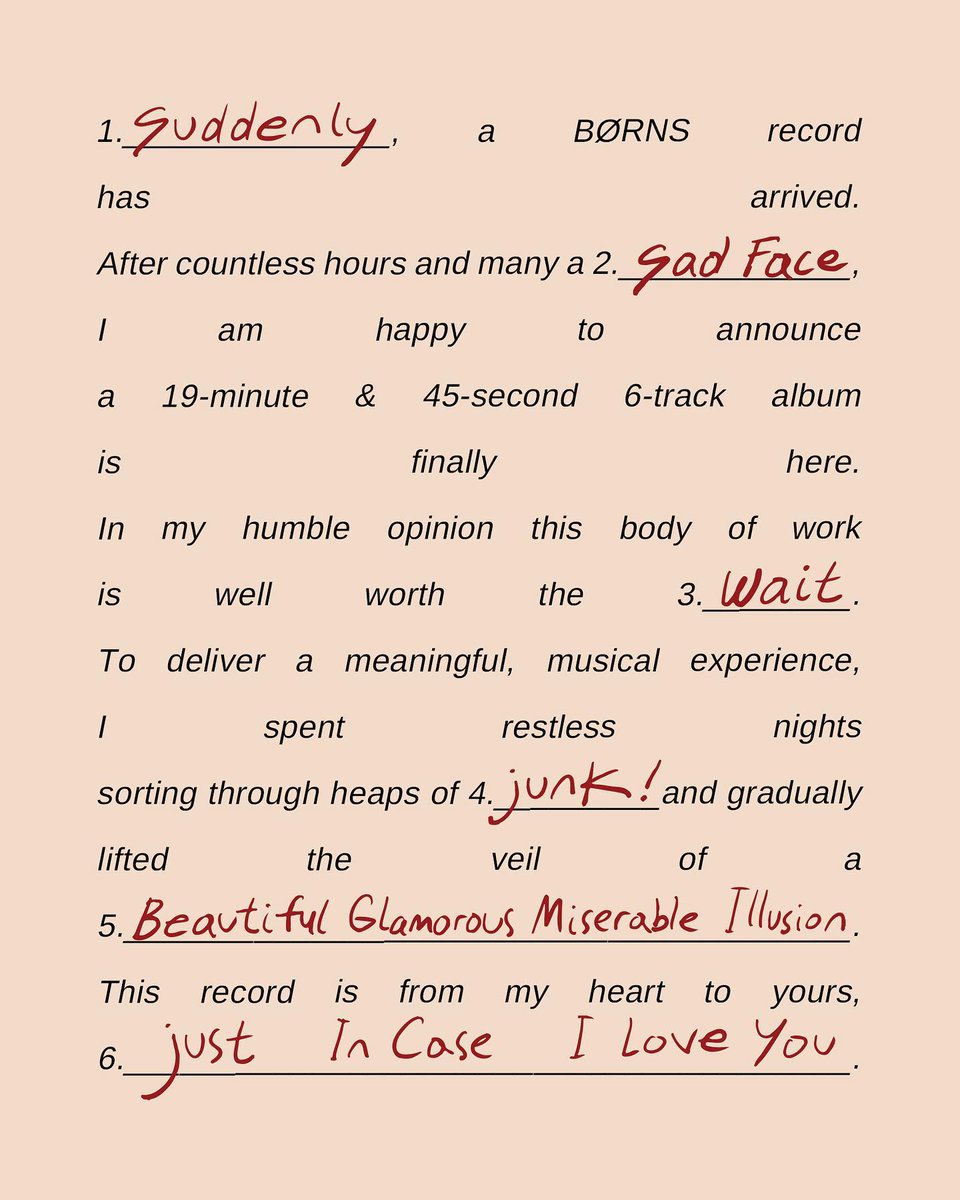 1. Suddenly, a BØRNS record
has arrived.
After countless hours and many a 2. Sad Face,
I am happy to announce
a 19-minute & 45-second 6-track album
is finally here.
In my humble opinion this body of work
is well worth the 3. Wait.
To deliver a meaningful, musical experience,
I spent restless nights
sorting through heaps of 4. junk! and gradually
lifted the veil of a
5. Beautiful Glamorous Miserable Illusion.
This record is from my heart to yours,
6. just In Case I Love You.